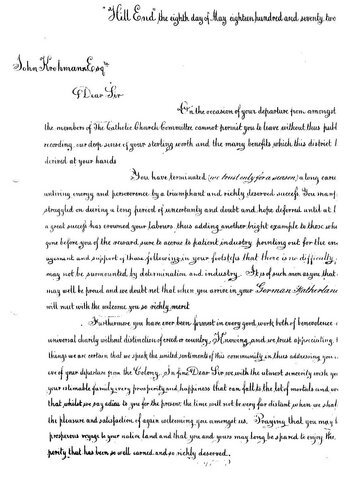 "Hill End" the eighth day of May eighteen hundred and seventy two
John Krohmann Esqre
Dear Sir
On the occasion of your departure from amongst
the members of the Catholic Church Committee cannot permit you to leave without thus publ
recording our deep sense of your sterling worth and the many benefits which this district h
derived at your hands
You have terminated (we trust only for a season) a long care
untiring energy and perseverance by a triumphant and richly deserved success. You man
struggled on during a long period of uncertainty and doubt and hope deferred until at l
a great success has crowned your labours, thus adding another bright example to those wh
gone before you of the reward sure to accrue to patient industry pointing out for the en
agement and support of those following in your footsteps that there is no difficulty
may not be surmounted by determination and industry. It is of such men as you that
may well be proud and we doubt not that when you arrive in your German Fatherlan
will meet with the welcome you so richly merit
Furthermore you have ever been foremost in every good work both of benevolence a
universal charity without distinction of creed or country. Knowing, and we trust appreciating, t
things we are certain that we speak the united sentiments of this community in thus addressing you
eve of your departure from the Colony. In fine Dear Sir we with the utmost sincerity wish yo
your estimable family every prosperity and happiness that can fall to the lot of mortals and
that whilst we say adieu to you for the present the time will not be very far distant when we shal
the pleasure and satisfaction of again welcoming you amongst us. Praying that you may
prosperous voyage to your native land and that you and yours may long be spared to enjoy the
perity that has been so well earned and so richly deserved.